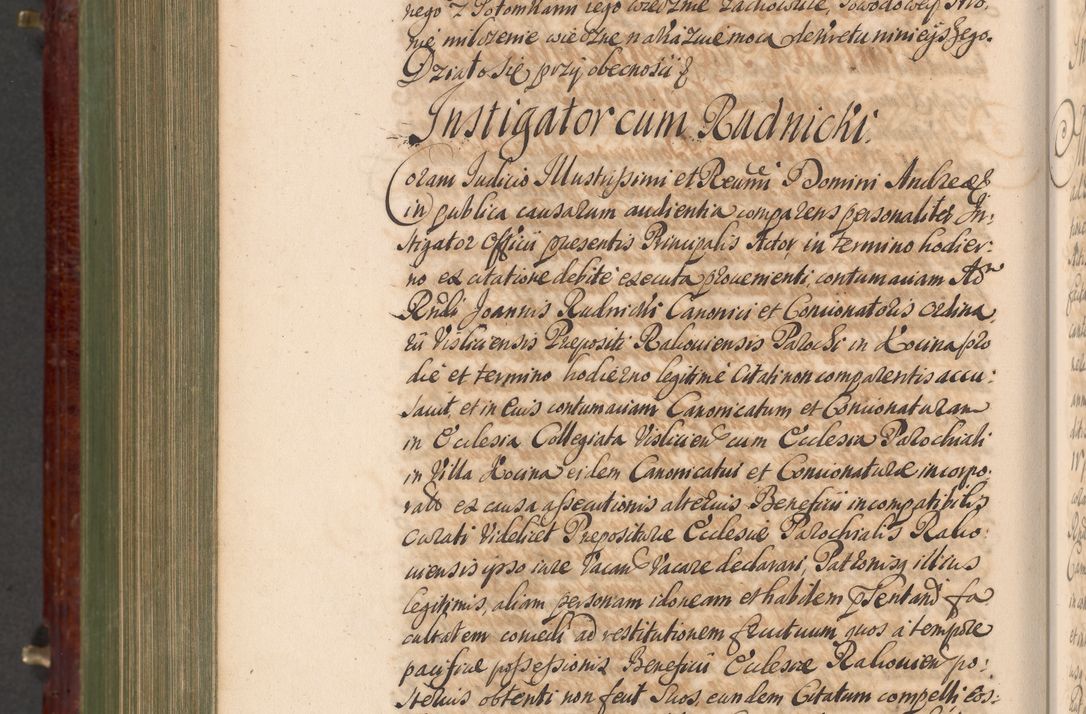 nego z Potomkami iego wiecznie zachowuie Powodowey stro,
nie milczenie wieczne nakazuie mocą dekretu ninieyszego.
Działo się przy obecnosci &
Instigator cum Rudnicki.
Coram Judicio Illustrissimi et Reverendissimi Domini Andreae &
in publica causarum audientia comparens personaliter In,
stigator Officii presentis Principalis Actor, in termino hodier,
no ex citatione debite executa provenienti, contumaciam Ad
Rndi Joannis Rudnicki Canonici et Concionatoris ordina
rii Visliciensis Prepositi Rakoviensis Parochi in Kocina pro
die et termino hodierno legitime Citati non comparentis accu:
savit, et in eius contumaciam Canonicatum et Concionaturam
in Ecclesia Collegiata Vislicien cum Ecclesia Parochiali
in Villa Kocina eidem Canonicatui et Concionaturae incorpo,
rato ex causa assecutionis alterius Beneficii incompatibilis
curati videlicet Prepositurae Ecclesiae Parochialis Rako:
viensis ipso iure Vacan Vacare declarari, Patronisq illius
legitimis, aliam personam idoneam et habilem psentand fa
cultatem concedi ad restitutionem fructuum quos a tempore
pacificae possessionis Beneficii Ecclesiae Rakovien po:
sterius obtenti non fecit suos, eundem Citatum compelli eos-